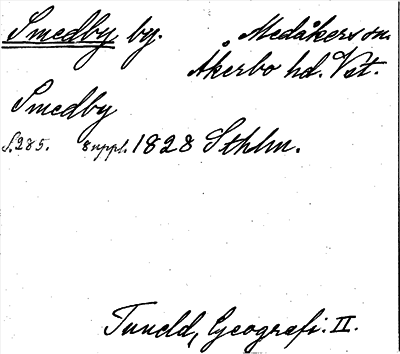 Smedby by. Medåkers sn.
Åkerbo hd. Vst.
Smedby
S.285. suppl. 1828 Sthlm.
Tuneld, Geografi. II.